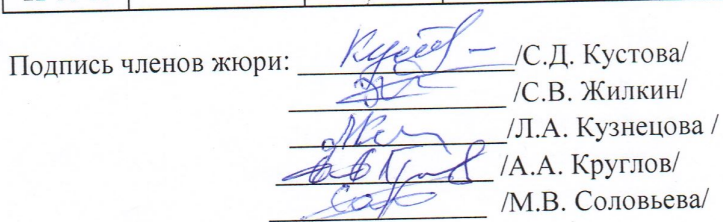 Подпись членов жюри: /С.Д. Кустова/
/С.В. Жилкин/
/Л.А. Кузнецова /
/А.А. Круглов/
/М.В. Соловьева/